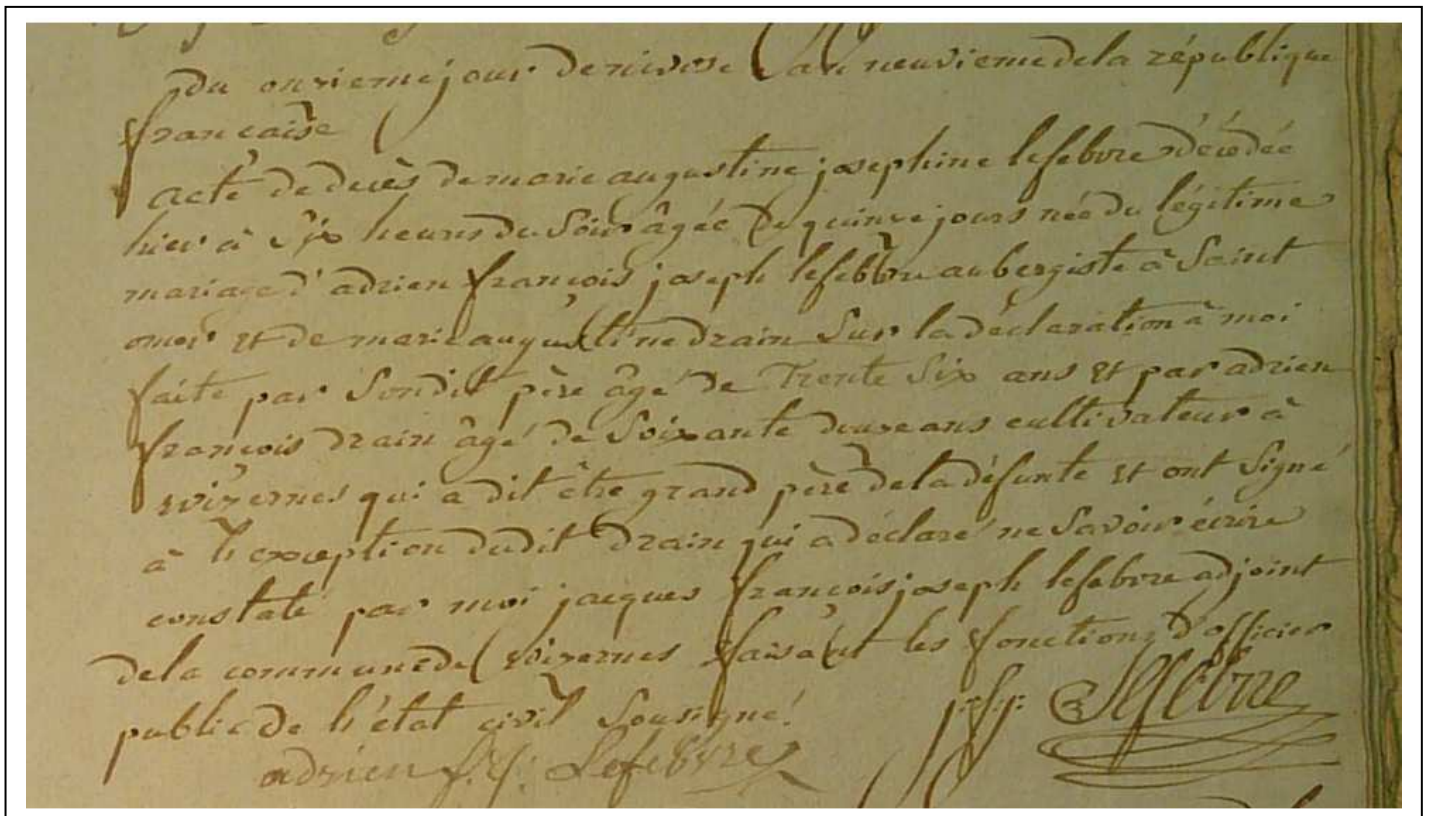 Du onzieme jour de nivose l'an neuvieme de la république
française
acte de decès de marie augustine josephine lefebvre décédée
hier à six heures du soir âgée de quinze jours née du légitime
mariage d'adrien françois joseph lefebvre aubergiste à saint
omer et de marie augustine drain sur la déclaration à moi
faite par sondit père âgé de trente six ans et par adrien
françois drain âgé de soixante douze ans cultivateur à
wizernes qui a dit être grand père de la défunte et ont signé
à l'exception dudit drain qui a déclaré ne savoir écrire
constaté par moi jacques françois joseph lefebvre adjoint
de la commune de wizernes faisant les fonctions d'officier
public de l'état civil sousigné.
adrien f. j. Lefebvre j. f. j. Lefebvre